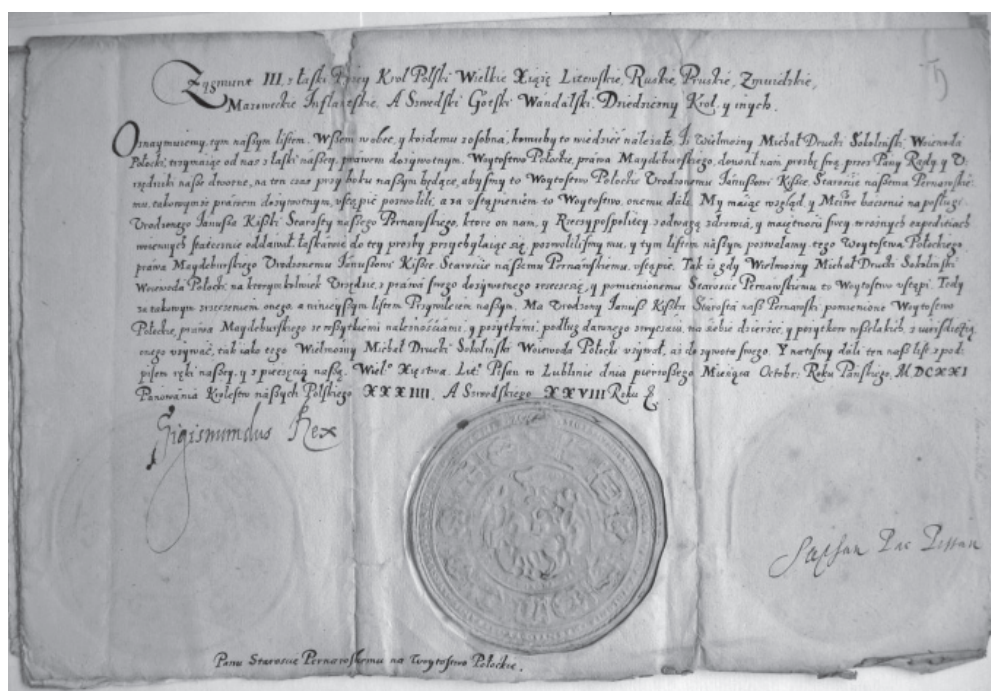 Zygmunt III. z łaski Bożey Krol Polski Wielkie Xiążę Litewskie, Ruskie, Pruskie, Zmuidzkie,
Mazoweckie Inflantskie. A Szwedzki Gotski Wandalski Dziedziczny Krol. y inych.
Oznaymuiemy, tym naszym listem. Wszem wobec, y kożdemu zosobna, komuby to wiedzieć należało, Iż Wielmożny Michał Drucki Sokolinski, Woiewoda
Połocki, trzymaiąc od nas z łaski naszey, prawem dożywotnym. Woytostwo Połockie, prawa Magdeburskiego, donosił nam prozbę swą, przez Pany Rady, y V-
rzędniki nasze dworne, na ten czas przy boku naszym będące, abysmy to Woytostwo Połockie Vrodzonemu Ianuszowi Kiszce, Staroscie naszemu Pernawskie-
mu, takowymże prawem dożywotnym, vstąpić pozwolili, a za vstąpieniem to Woytostwo, onemu dali. My maiąc wzgląd, y baczenie na posługi
Vrodzonego Ianusza Kiszki Starosty naszego Pernawskiego, ktore on nam, y Rzeczypospolitey z odwagą zdrowia, y maiętnosci swey w roznych expeditiach
woiennych statecznie oddawał, łaskawie do tey prozby przychylaiąc się, pozwolilismy mu, y tym listem naszym pozwalamy tego Woytostwa Połockiego
prawa Magdeburskiego Vrodzonemu Ianuszowi Kiszce. Staroscie naszemu Pernawskiemu, vstąpić. Tak iż gdy Wielmożny Michał Drucki Sokolinski
Woiewoda Połocki, na ktorymkolwiek Vrzędzie, z prawa swego dożywotnego zrzecze się, y pomienionemu Staroscie Pernawskiemu to Woytostwo vstąpi. Tedy
za takowym zrzeczeniem onego, a ninieyszym listem Przywileiem naszym. Ma Vrodzony Ianusz Kiszka Starosta nasz Pernawski pomienione Woytostwo
Połockie, prawa Magdeburskiego ze wszytkiemi należnosciami, y pożytkami, podług dawnego zwyczaiu, na siebie dzierżeć, y pożytkow wszelakich, z iurisdictią
onego vżywać, tak iako tego Wielmożny Michał Drucki Sokolinski Woiewoda Połocki vżywał, aż do żywota swego. Y natesmy dali ten nasz list, z pod-
pisem ręki naszey, y z pieczęcią naszą. Wielo Xięstwa. Lito Pisan w Lublinie dnia pierwszego Miesiąca Octobr: Roku Panskiego, MDCXXI
Panowania Krolestw naszych Polskiego XXXIIII, A Szwedzkiego XXVIII Roku
Sigismundus Rex
Stephan Pac Pissarz
Panu Staroscie Pernawskiemu na Woytostwo Połockie.